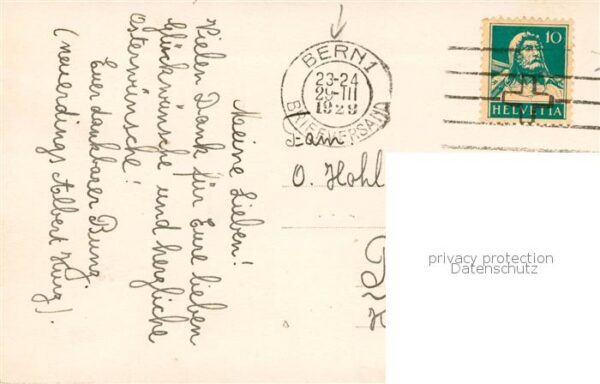 Meine Lieben!
Vielen Dank für Eure lieben
Glückwünsche und herzliche
Osterwünsche!
Euer dankbarer Bung.
(neuerdings Albert Hung).
BERN 1
23-24
29·III
1929
BRIEFVERSAND
10
HELVETIA
Fam
O. Hohl
privacy protection
Datenschutz